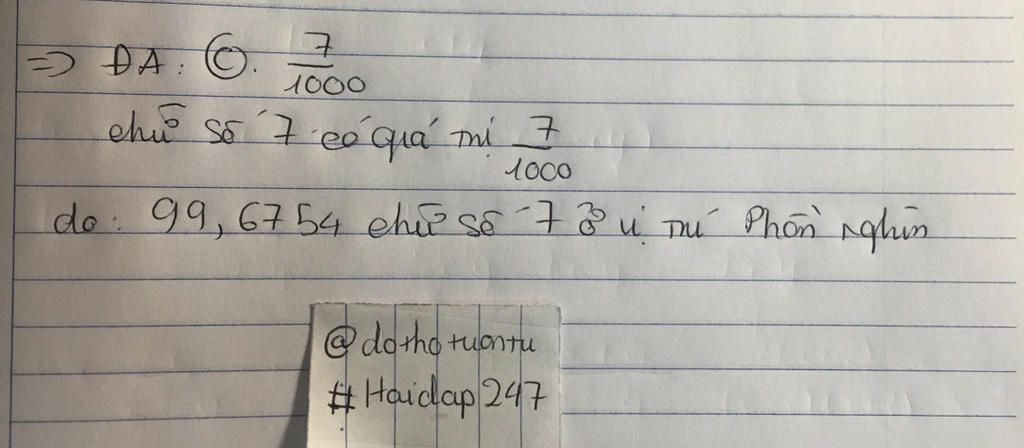 => ĐA: ©. 7/1000
chữ số 7 có quá trị 7/1000
do: 99,6754 chữ số 7 ở vị trí Phần nghìn
@dothotuontu
#Hoidap247